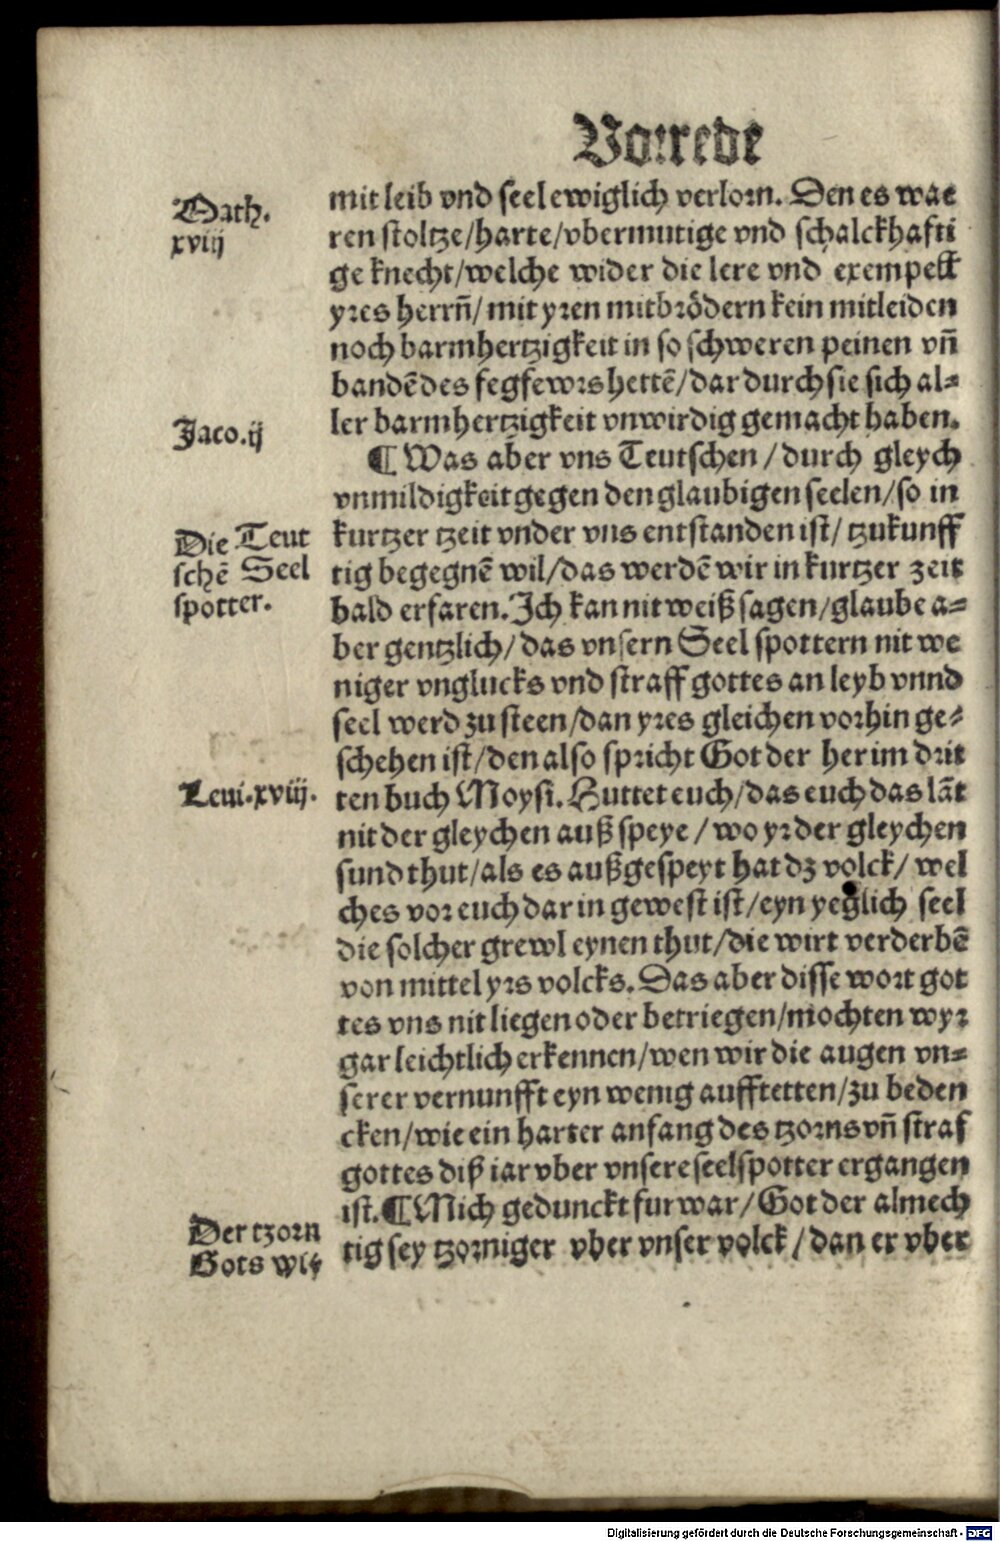 Vorrede
Math.
xviij
mit leib vnd seel ewiglich verlorn. Den es wae
ren stoltze/harte/vbermutige vnd schalckhafti
ge knecht/welche wider die lere vnd exempell
yres herrn̄/mit yren mitbrödern kein mitleiden
noch barmhertzigkeit in so schweren peinen vn̄
bandē des fegfewrs hettē/dar durch sie sich al⸗
Jaco.ij
ler barmhertzigkeit vnwirdig gemacht haben.
¶ Was aber vns Teutschen/durch gleych
vnmildigkeit gegen den glaubigen seelen/so in
Die Teut
schē Seel
spotter.
kurtzer tzeit vnder vns entstanden ist/tzukunff
tig begegnē wil/das werdē wir in kurtzer zeit
bald erfaren. Ich kan nit weiß sagen/glaube a⸗
ber gentzlich/das vnsern Seel spottern nit we
niger vnglucks vnd straff gottes an leyb vnnd
seel werd zu steen/dan yres gleichen vorhin ge⸗
schehen ist/den also spricht Got der her im drit
Leui.xviij.
ten buch Moysi. Huttet euch/das euch das lāt
nit der gleychen auß speye/wo yr der gleychen
sund thut/als es außgespeyt hat dz volck/wel
ches vor euch dar in gewest ist/eyn yeglich seel
die solcher grewl eynen thut/die wirt verderbē
von mittel yrs volcks. Das aber disse wort got
tes vns nit liegen oder betriegen/mochten wyr
gar leichtlich erkennen/wen wir die augen vn⸗
serer vernunfft eyn wenig aufftetten/zu beden
cken/wie ein harter anfang des tzorns vn̄ straf
gottes diß iar vber vnsere seelspotter ergangen
Der tzorn
Gots wly
ist. ¶ Mich gedunckt fur war/Got der almech
tig sey tzorniger vber vnser volck/dan er vber
Digitalisierung gefördert durch die Deutsche Forschungsgemeinschaft - DFG